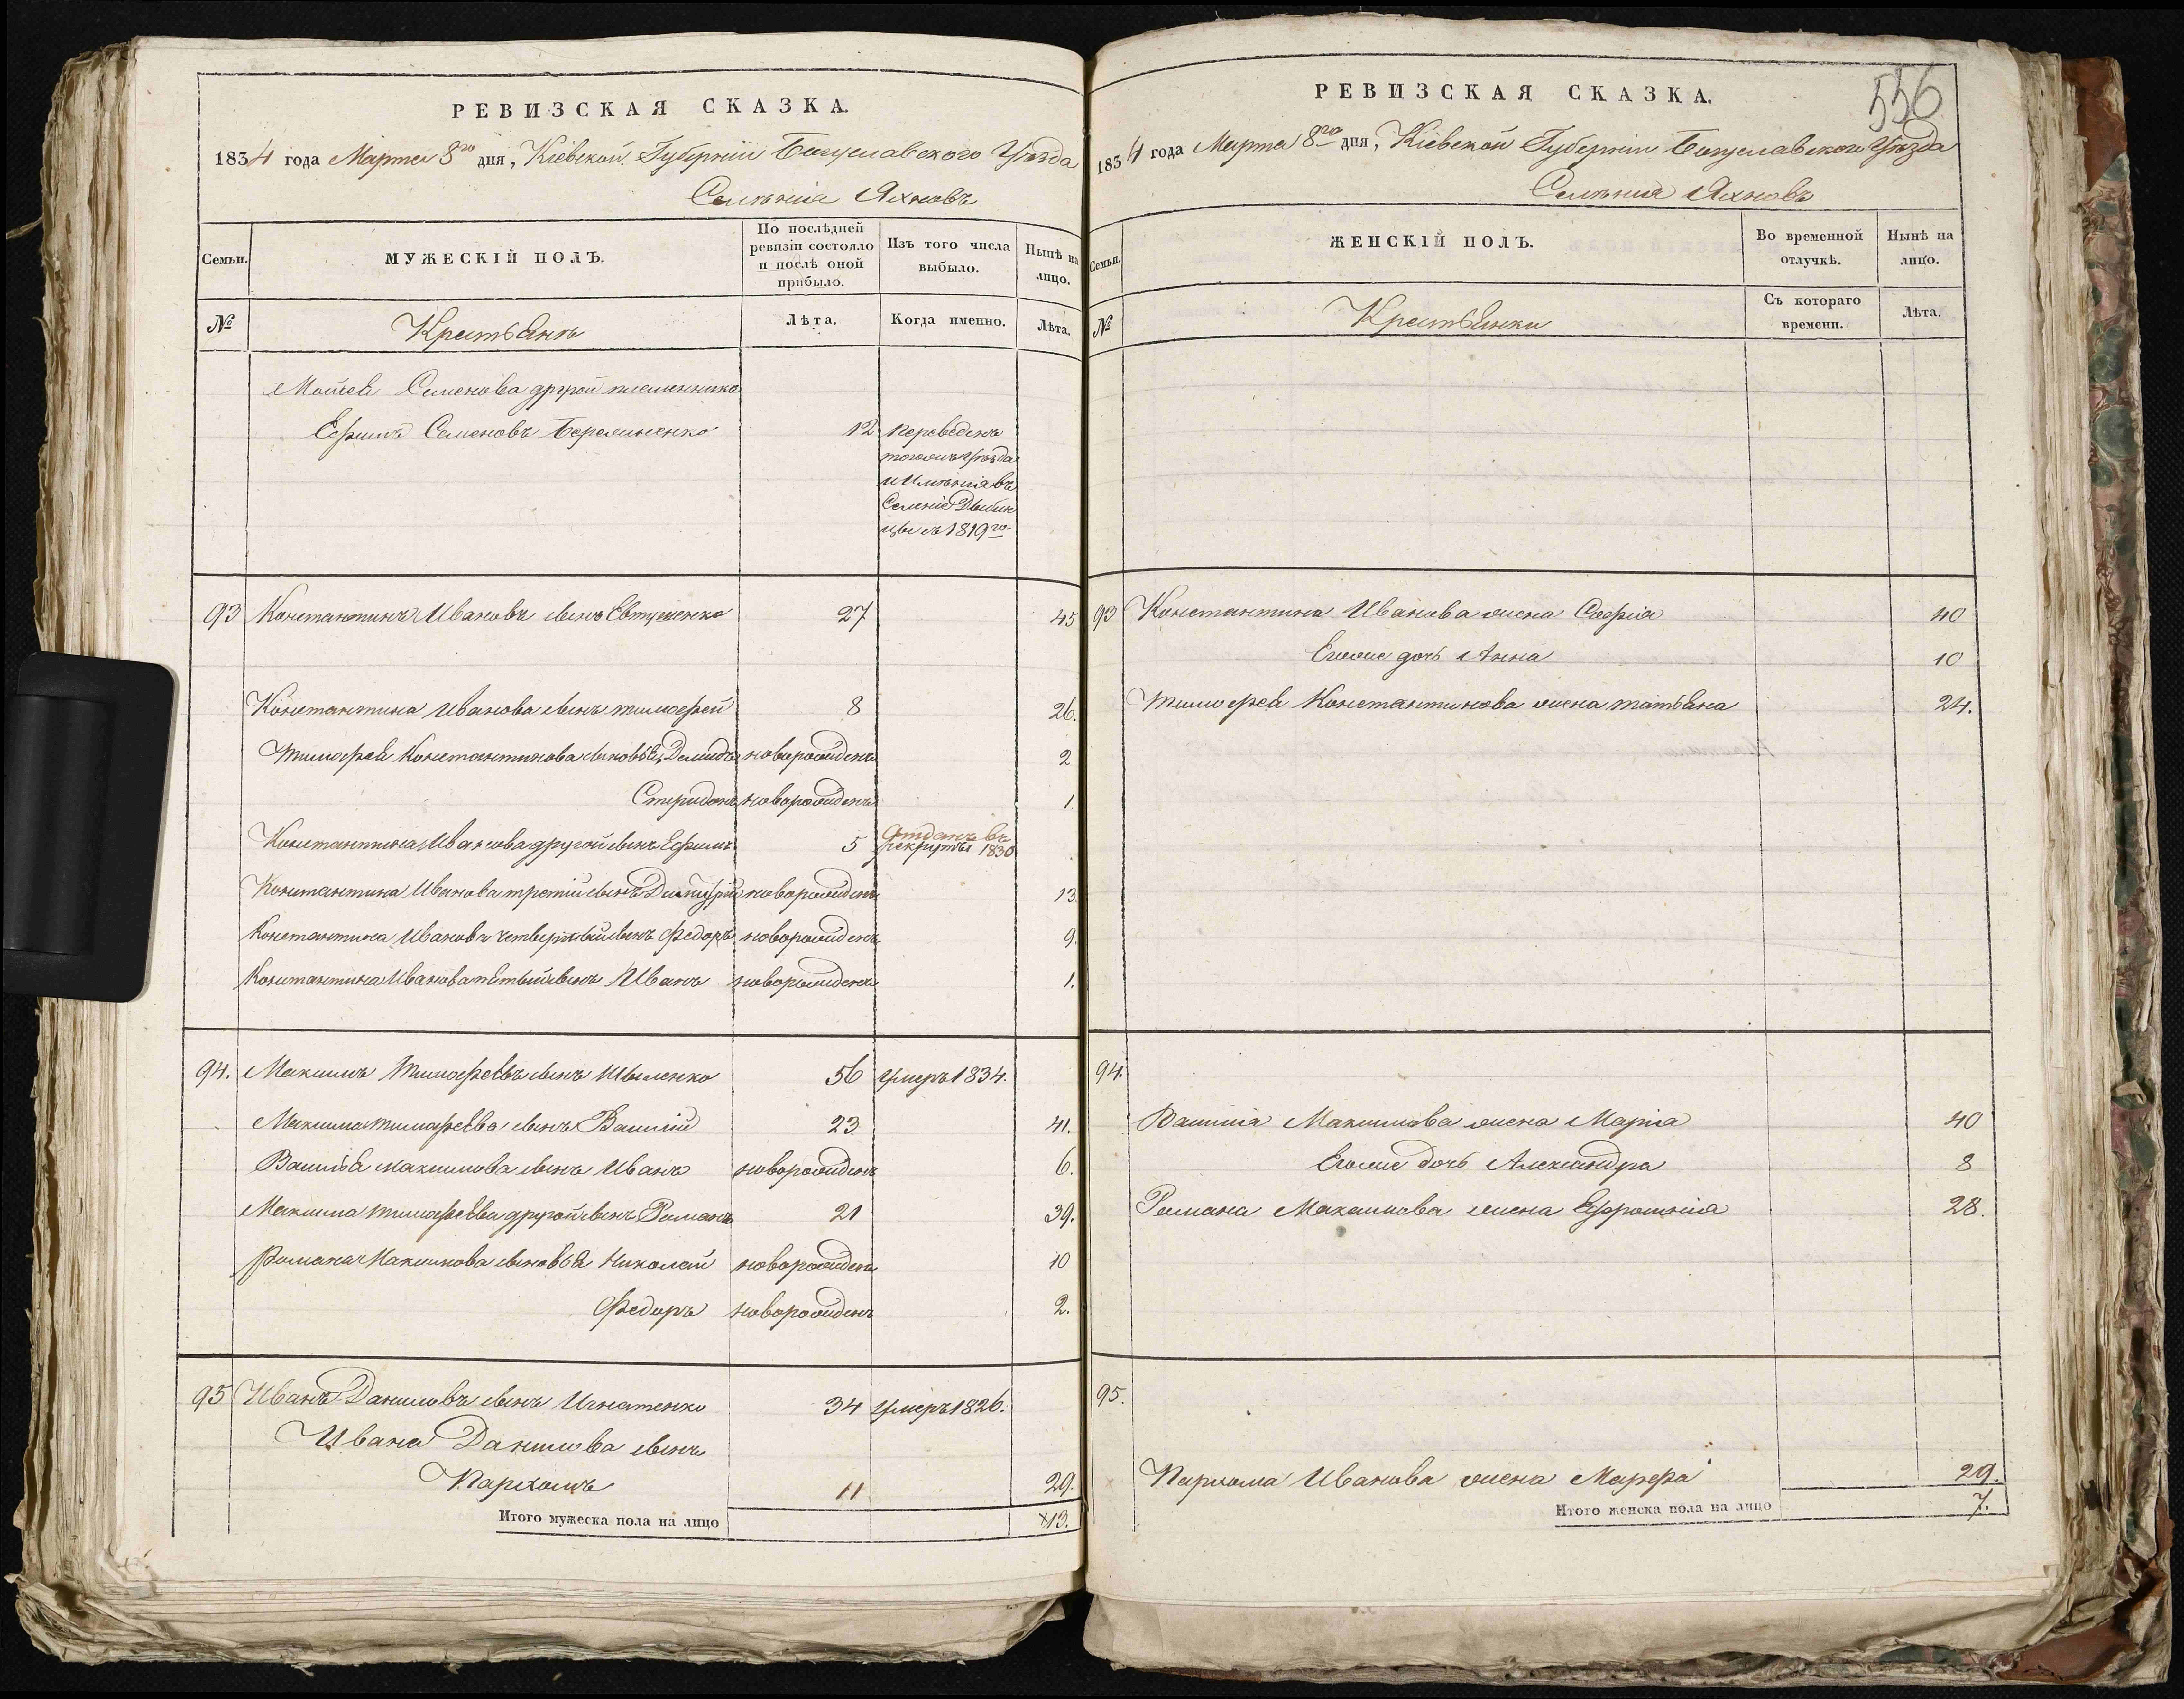 РЕВИЗСКАЯ СКАЗКА.
1834 года Марта 8го дня, Кіевской Губерніи Богуславского Уѣзда
Селѣнія Яхновъ
Семьи.
МУЖЕСКІЙ ПОЛЪ.
По послѣдней ревизіи состояло и послѣ оной прибыло.
Изъ того числа выбыло.
Нынѣ на лицо.
№
Крестьянъ
Лѣта.
Когда именно.
Лѣта.
Мойсея Семенова другой племенникъ
Ефимъ Семеновъ 12 переведенъ
тогожъ уѣзда
и имѣнія въ
Селеніе Дыбин
цы въ 1819го
93 Константинъ Ивановъ сынъ Евтушенко 27 45
Константина Иванова сынъ Тимофей 8 26.
Тимофея Константинова сыновья, Демидъ новорожденъ 2
Спиридонъ новорожденъ 1.
Константина Иванова другой сынъ Ефимъ 5 отданъ въ
рекруты 1830
Константина Иванова третій сынъ Дмитрій новорожденъ 13.
Константина Иванова четвертый сынъ Федоръ новорожденъ 9.
Константина Иванова пятый сынъ Иванъ новорожденъ 1.
94. Максимъ Тимофеевъ сынъ Швыленко 56 умеръ 1834.
Максима Тимофеева сынъ Василій 23 41.
Василья Максимова сынъ Иванъ новорожденъ 6.
Максима Тимофеева другой сынъ Романъ 21 39.
Романа Максимова сыновья Николай новорожденъ 10
Федоръ новорожденъ 2.
95 Иванъ Даниловъ сынъ Игнатенко 34 умеръ 1826.
Ивана Данилова сынъ
Пархомъ 11 29.
Итого мужеска пола на лицо 13.
556
РЕВИЗСКАЯ СКАЗКА.
1834 года Марта 8го дня, Кіевской Губерніи Богуславского Уѣзда
Селѣнія Яхновъ
Семьи.
ЖЕНСКІЙ ПОЛЪ.
Во временной отлучкѣ.
Нынѣ на лицо.
№
Крестьянки
Съ котораго времени.
Лѣта.
93 Константина Иванова жена Софія 40
Егоже дочь Анна 10
Тимофея Константинова жена Татьяна 24.
94.
Василія Максимова жена Марія 40
Егоже дочь Александра 8
Романа Максимова жена Ефросинія 28.
95.
Пархома Иванова жена Марфа 29.
Итого женска пола на лицо 7.